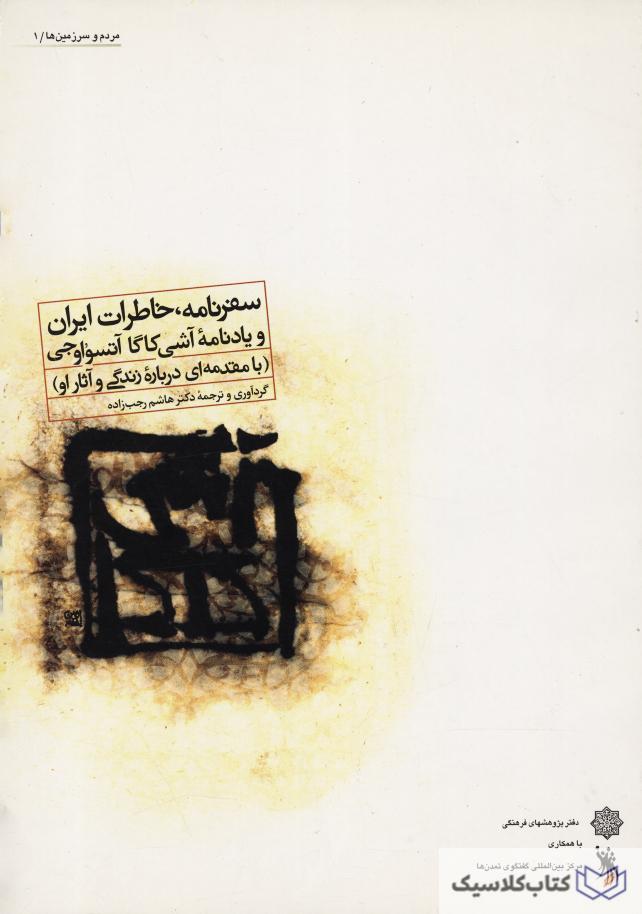 مردم و سرزمین‌ها/۱
سفرنامه، خاطرات ایران
و یادنامهٔ آشی‌کاگا آتسواوجی
(با مقدمه‌ای دربارهٔ زندگی و آثار او)
گردآوری و ترجمهٔ دکتر هاشم رجب‌زاده
دفتر پژوهشهای فرهنگی
با همکاری
مرکز بین‌المللی گفتگوی تمدن‌ها
کتاب کلاسیک